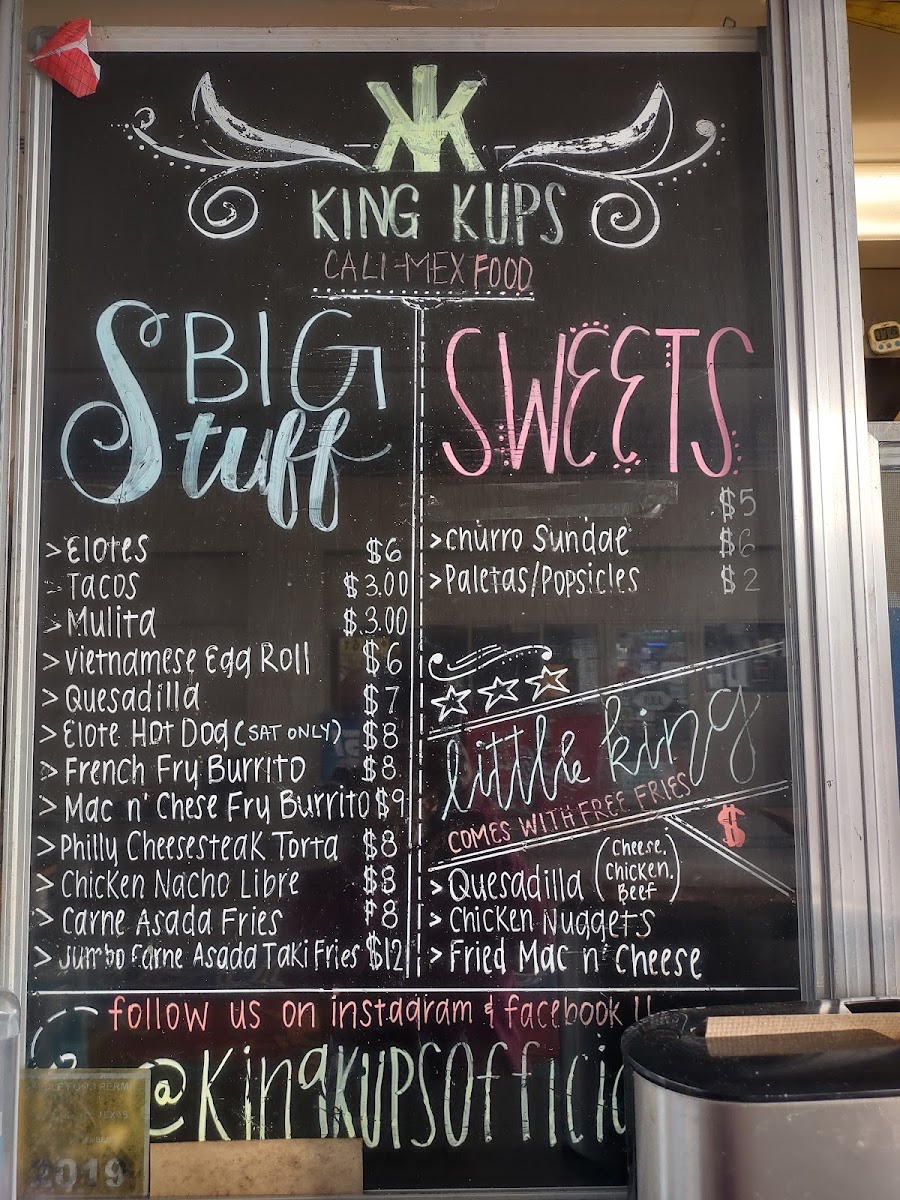 KK
KING KUPS
CALI-MEX FOOD
BIG
Stuff
> Elotes $6
> Tacos $3.00
> Mulita $3.00
> Vietnamese Egg Roll $6
> Quesadilla $7
> Elote Hot Dog (SAT ONLY) $8
> French Fry Burrito $8
> Mac n' Chese Fry Burrito $9
> Philly Cheesesteak Torta $8
> Chicken Nacho Libre $8
> Carne Asada Fries $8
> Jumbo Carne Asada Taki Fries $12
SWEETS
$5
> Churro Sundae $6
> Paletas/Popsicles $2
little king
COMES WITH FREE FRIES
$
> Quesadilla (Cheese, Chicken, Beef)
> Chicken Nuggets
> Fried Mac n' Cheese
follow us on instagram & facebook !!
@KingKupsOffici
TEXAS
2019